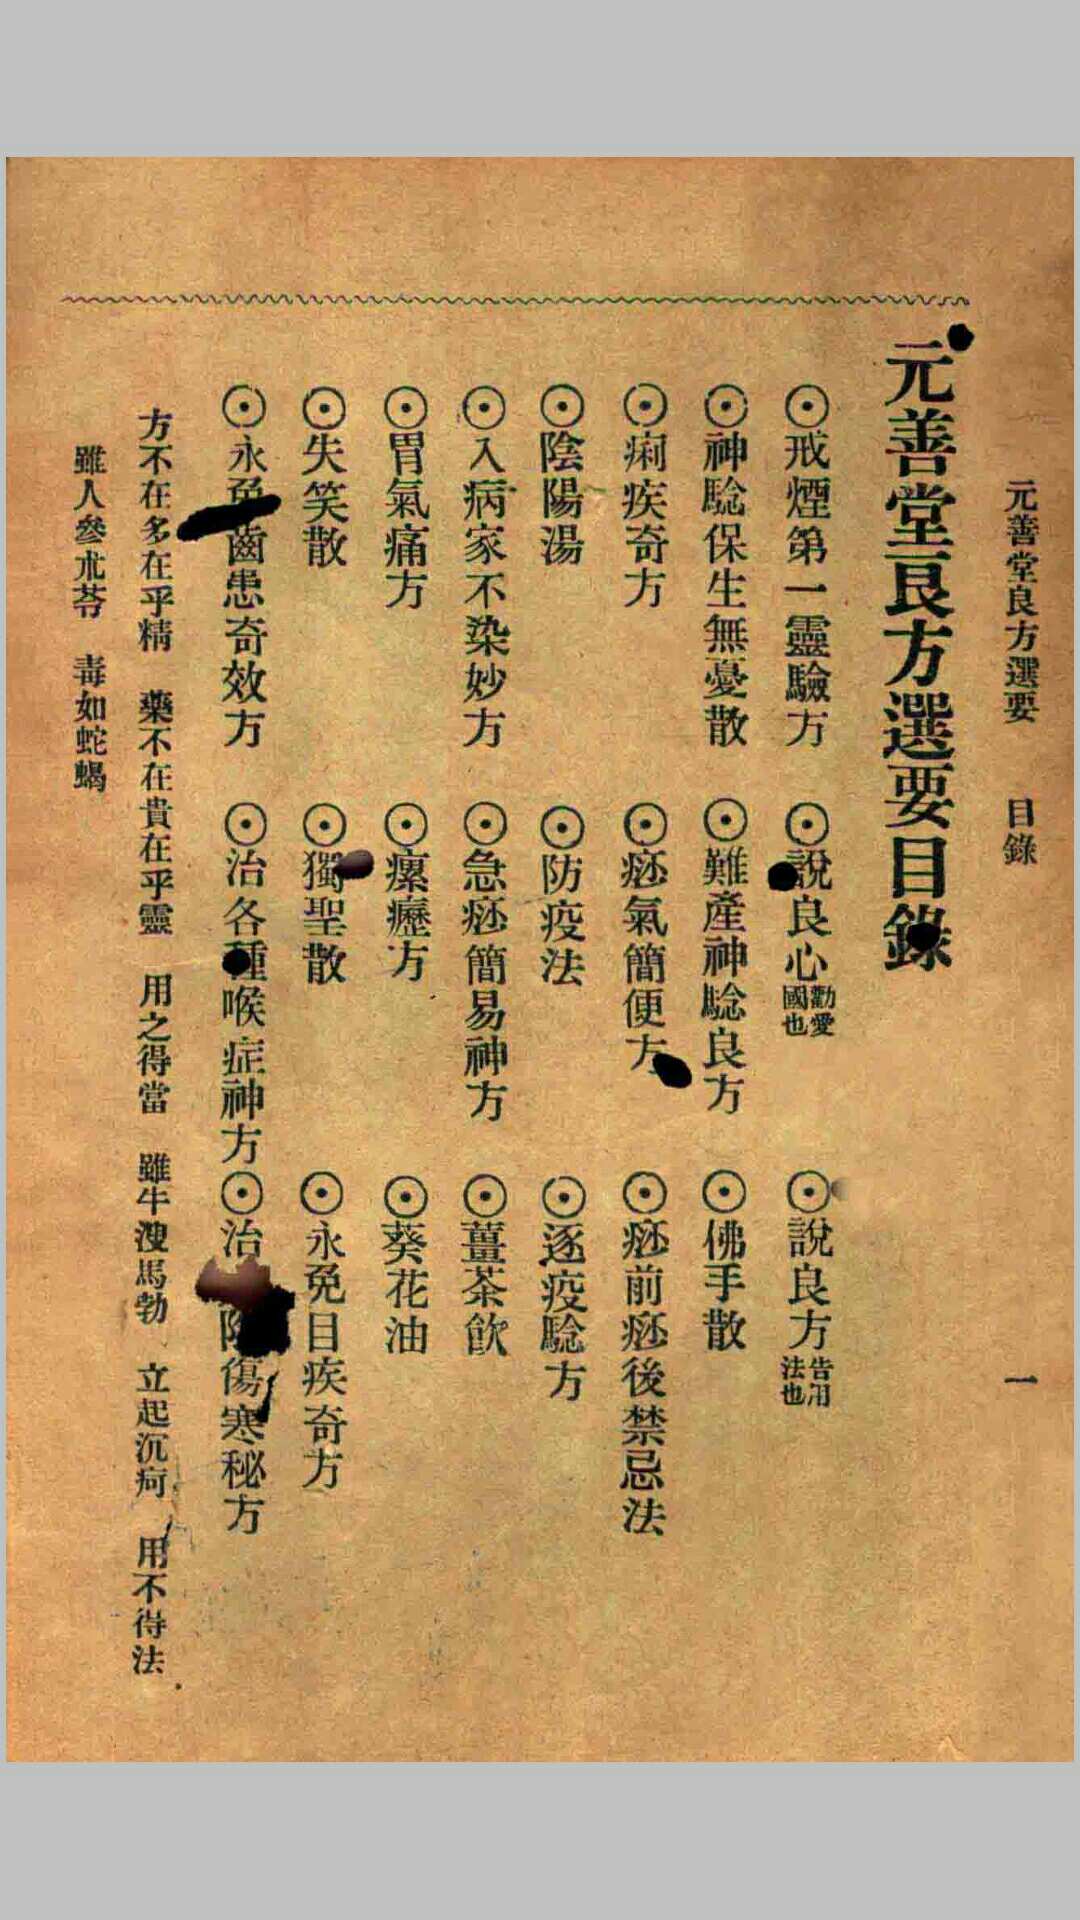 元善堂良方選要　目錄　一
元善堂良方選要目錄
⊙戒煙第一靈驗方　⊙說良心勸愛國也　⊙說良方告用法也
⊙神騐保生無憂散　⊙難產神騐良方　⊙佛手散
⊙痢疾奇方　⊙痧氣簡便方　⊙痧前痧後禁忌法
⊙陰陽湯　⊙防疫法　⊙逐疫騐方
⊙入病家不染妙方　⊙急痧簡易神方　⊙薑茶飲
⊙胃氣痛方　⊙瘰癧方　⊙葵花油
⊙失笑散　⊙獨聖散　⊙永免目疾奇方
⊙永免齒患奇效方　⊙治各種喉症神方　⊙治陰傷寒秘方
方不在多在乎精　藥不在貴在乎靈　用之得當　雖牛溲馬勃　立起沉疴　用不得法
雖人參朮苓　毒如蛇蝎